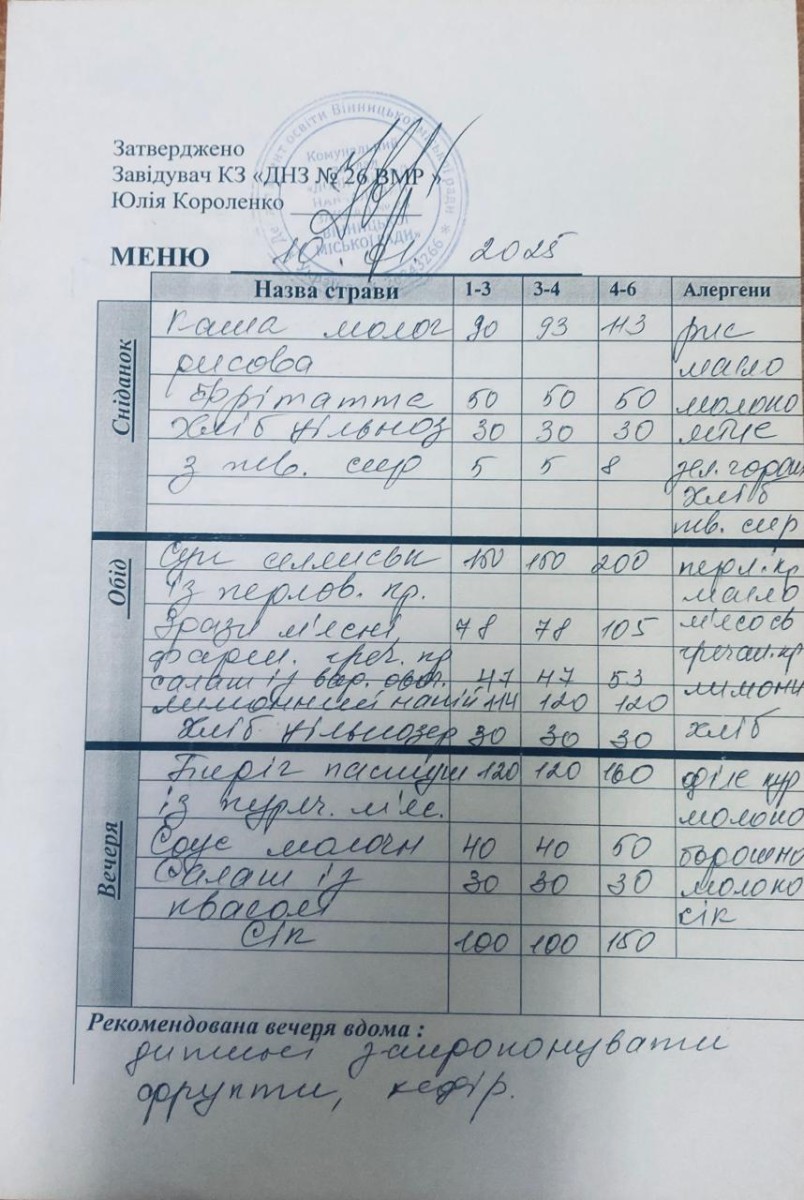 Затверджено
Завідувач КЗ «ДНЗ № 26 ВМР »
Юлія Короленко
Комунальний
МІСЬКОЇ РАДИ»
МЕНЮ 10. 2025
Назва страви 1-3 3-4 4-6 Алергени
Сніданок
Каша молоч 90 93 113 рис
рисова масло
Фрітатта 50 50 50 молоко
Хліб цільноз 30 30 30 яйце
з тв. сир 5 5 8 зел. горош
хліб
тв. сир
Обід
Суп селянськ 150 150 200 перл. кр
із перлов. кр. масло
Зрази м'ясні 78 78 105 м'ясо св
фарш. греч. кр гречан. кр
салат із вар. овоч. 47 47 53
лимонний напій 114 120 120 лимони
Хліб цільнозер 30 30 30 хліб
Вечеря
Пиріг пастуш 120 120 160 філе кур
із куряч. м'яс. молоко
Соус молочн 40 40 50 борошно
Салат із 30 30 30 молоко
квасолі сік
Сік 100 100 150
Рекомендована вечеря вдома :
дитині запропонувати
фрукти, кефір.